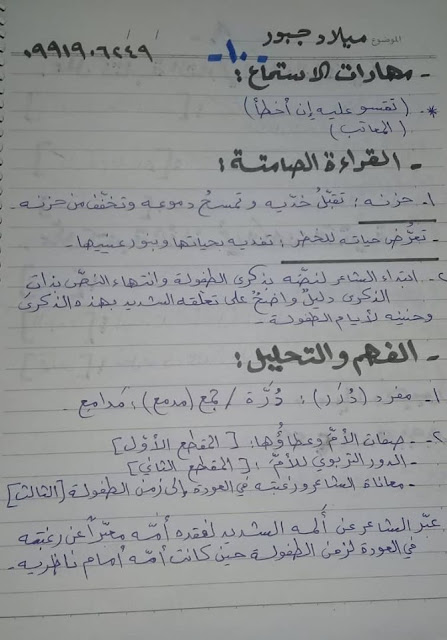 الموضوع ميلاد جبور ٠٩٩١٩٠٦٢٤٩
-١٠-
- مهارات الاستماع:
*- (تقسو عليه إن أخطأ)
(المعاتب)
- القراءة الصامتة:
١- حزنه: تقبّلُ خدّيه وتمسحُ دموعه وتخفّف من حزنه.
- تعرُّض حياته للخطر: تفديه بحياتها وبنور عينيها.
٢- ابتداء الشاعر لنصّه بذكرى الطفولة وانتهاء النصّ بذات
الذكرى دليلٌ واضحٌ على تعلّقه الشديد بهذه الذكرى
وحنينه لأيام الطفولة.
- الفهم والتحليل:
١- مفرد (دُرَر): دُرَّة / جمع (مدمع): مَدامع.
٢- - صفات الأمّ وعطاؤُها: [المقطع الأوّل]
- الدور التربوي للأمّ: [المقطع الثاني]
- معاناة الشاعر ورغبته في العودة إلى زمن الطفولة [الثالث]
عبّر الشاعر عن ألمه الشديد لفقده أُمّه معبّراً عن رغبته
في العودة لزمن الطفولة حين كانت أمّه أمام ناظريه.